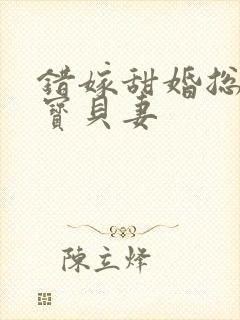 错嫁甜婚总
寶貝妻
陳立烽